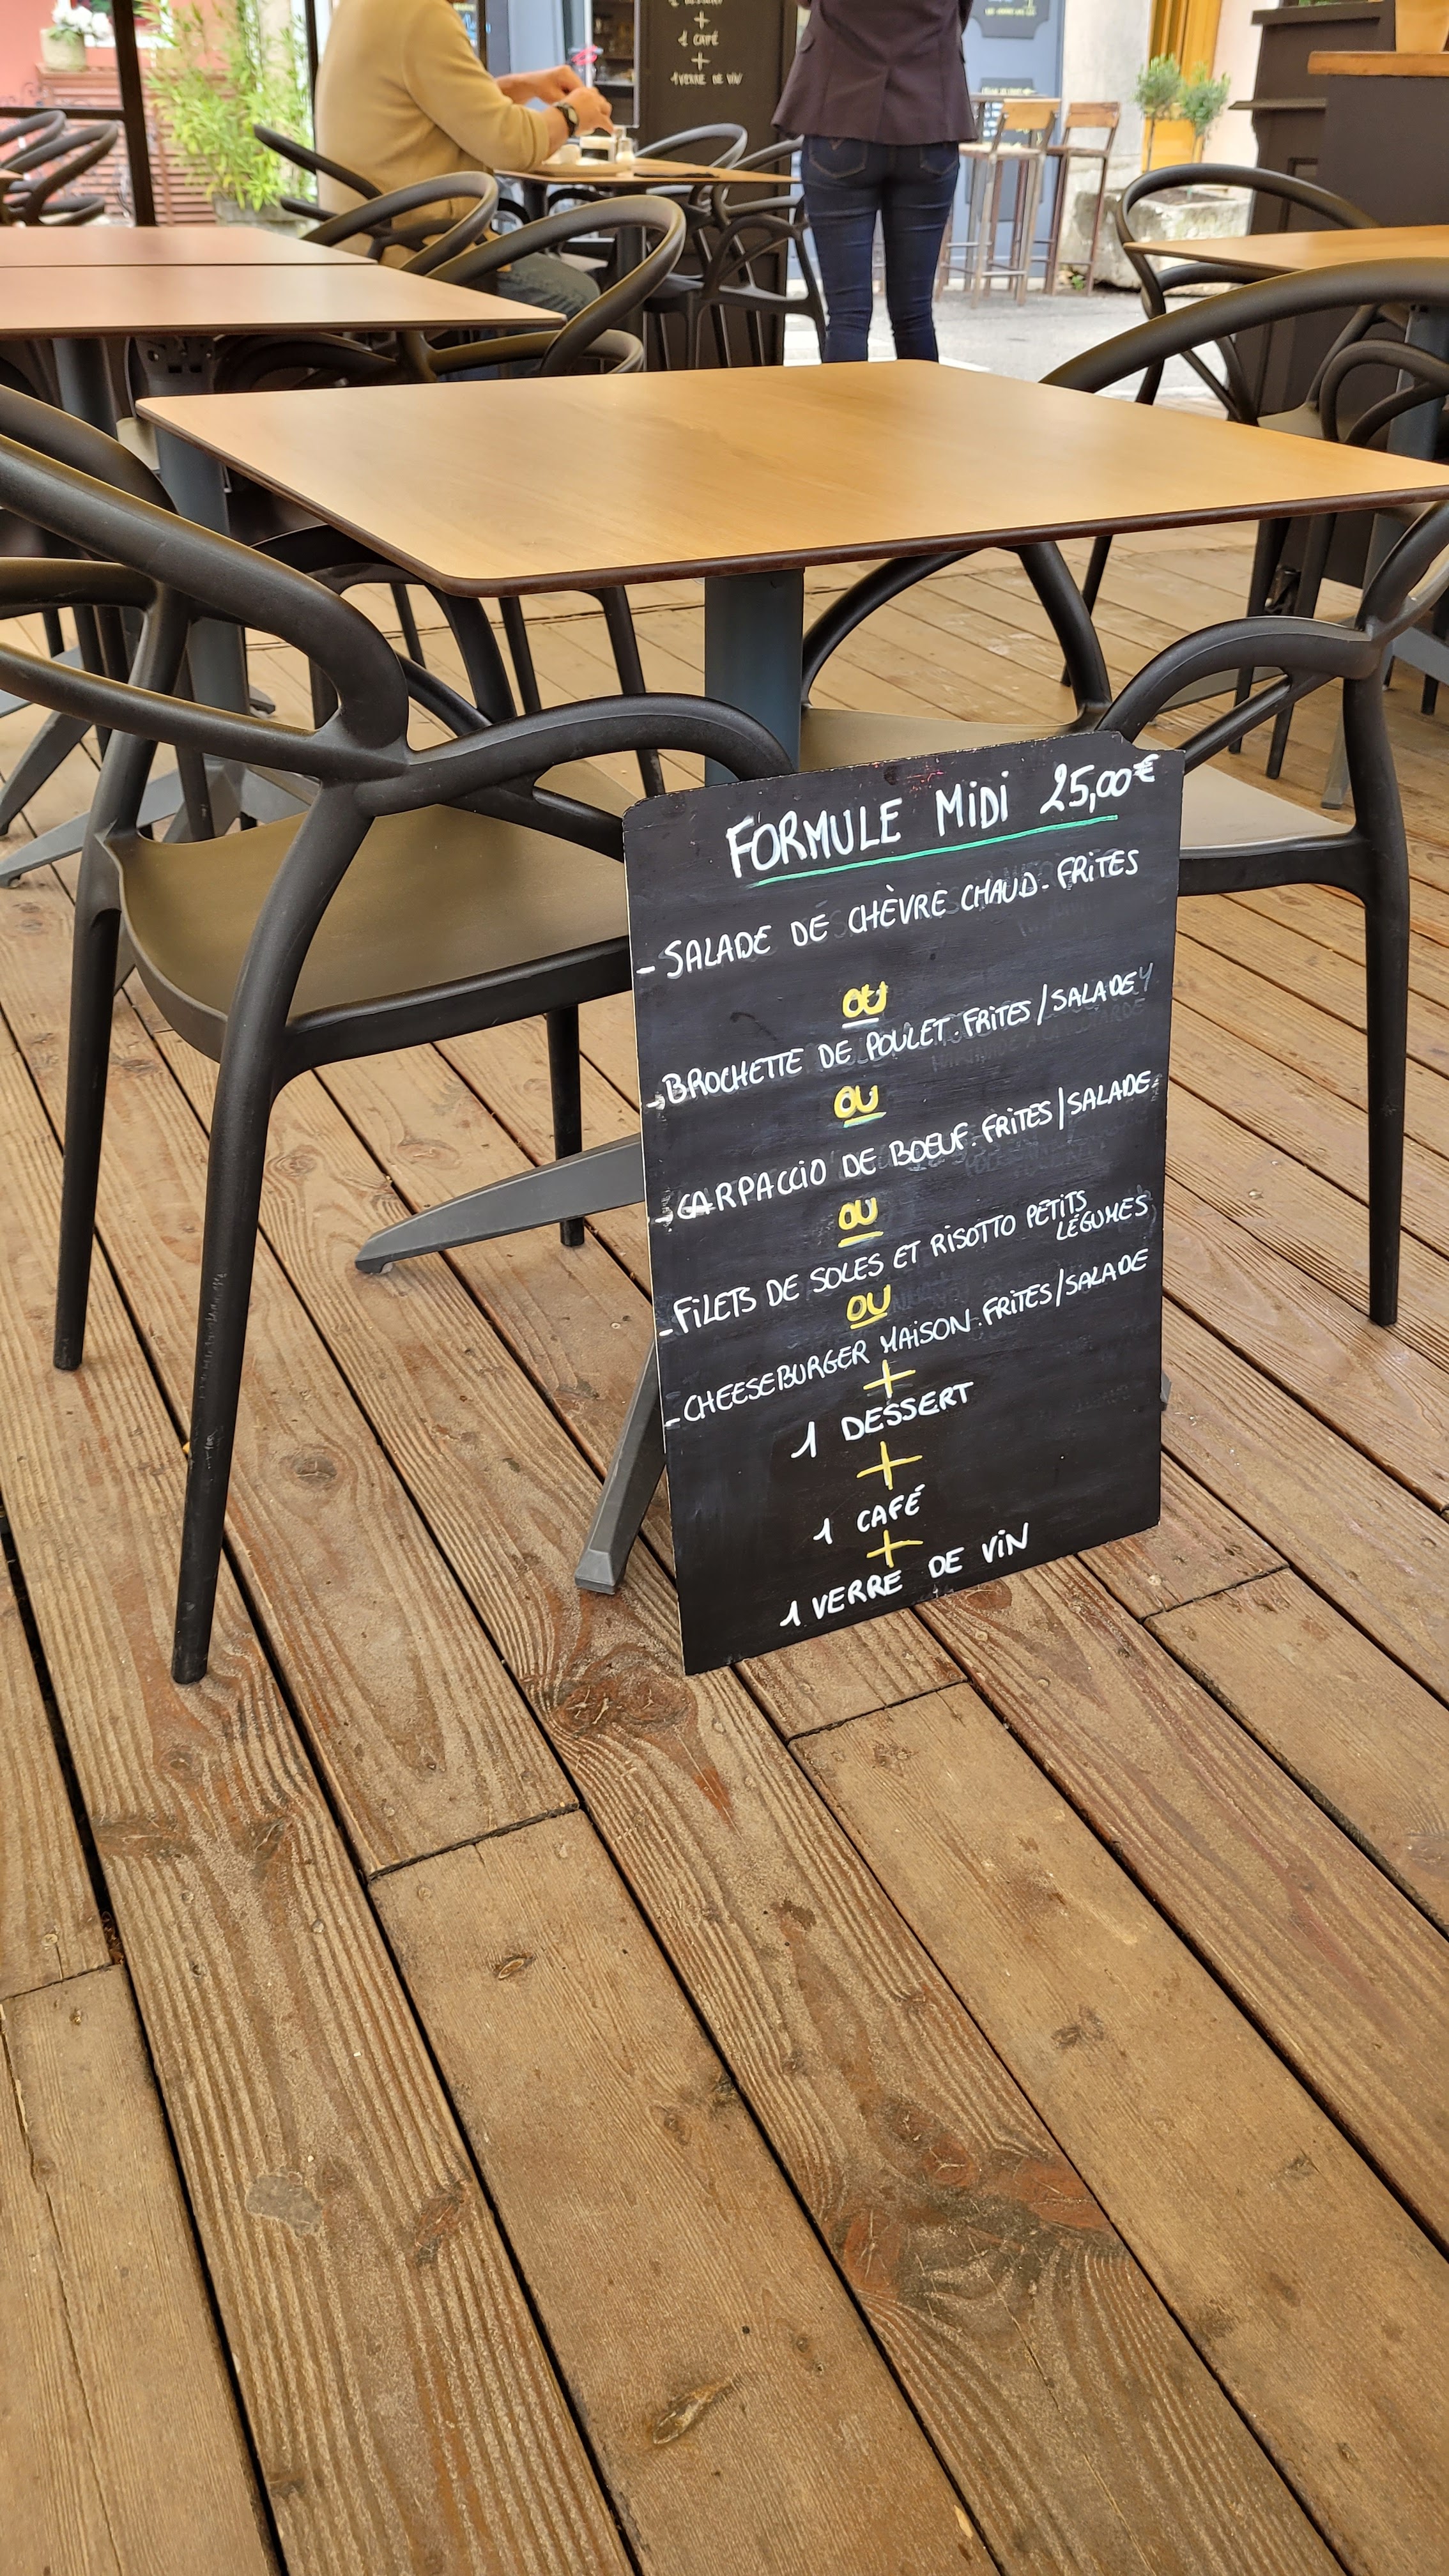 +
1 CAFÉ
+
1 VERRE DE VIN
FORMULE MiDi 25,00€
- SALADE DE CHÈVRE CHAUD. FRITES
OU
- BROCHETTE DE POULET. FRITES / SALADE
OU
- CARPACCIO DE BOEUF. FRITES / SALADE
OU
- FiLETS DE SOLES ET RISOTTO PETITS
LÉGUMES
OU
- CHEESEBURGER MAISON. FRITES / SALADE
+
1 DESSERT
+
1 CAFÉ
+
1 VERRE DE ViN